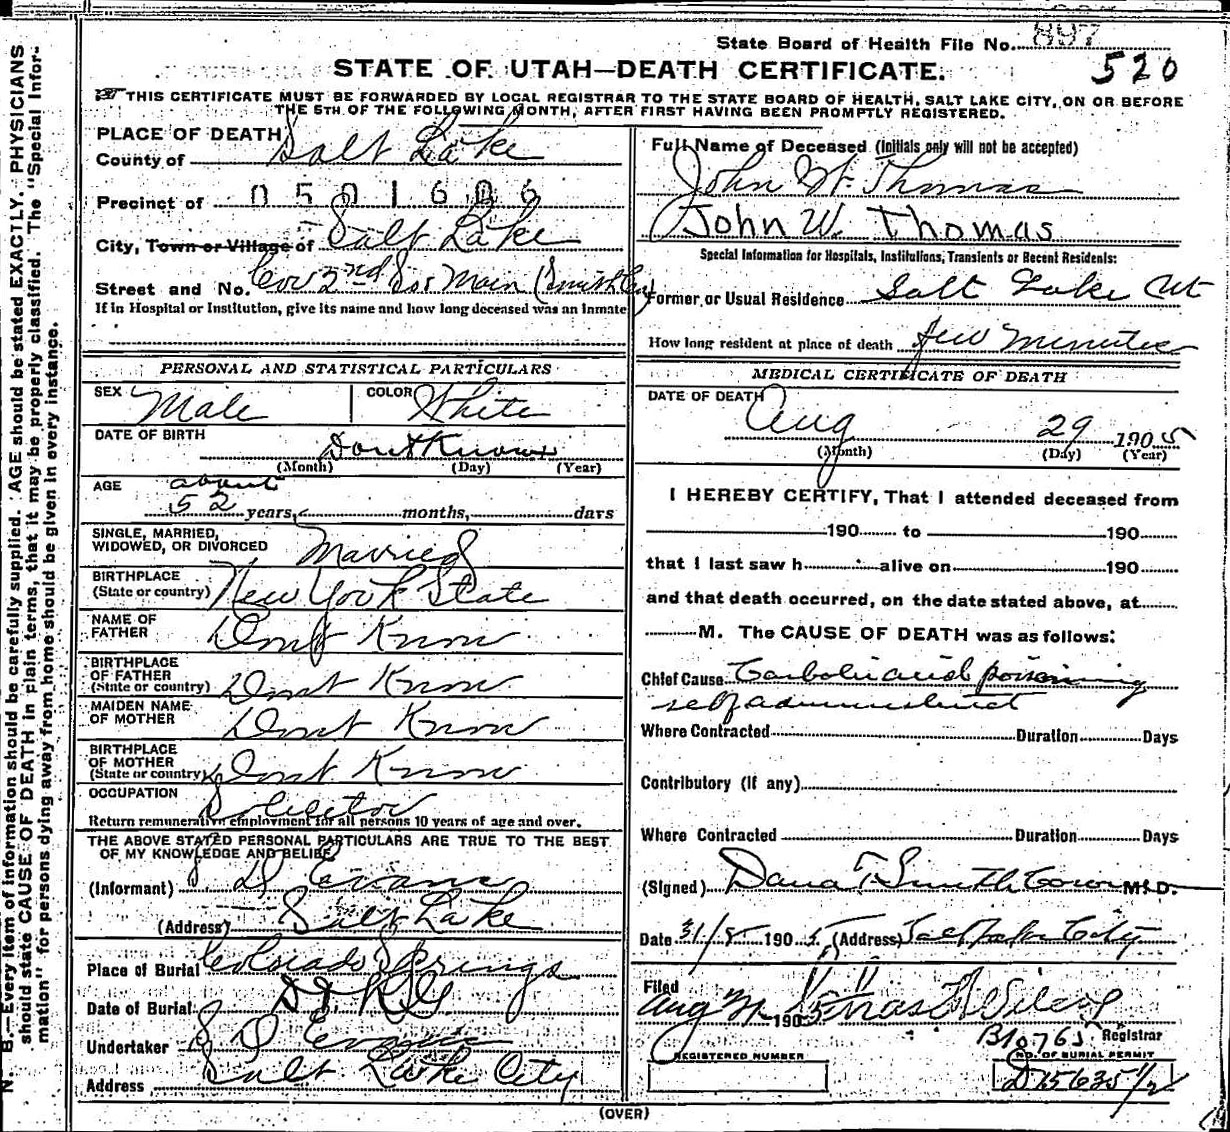 State Board of Health File No. 897
520
STATE OF UTAH—DEATH CERTIFICATE.
THIS CERTIFICATE MUST BE FORWARDED BY LOCAL REGISTRAR TO THE STATE BOARD OF HEALTH, SALT LAKE CITY, ON OR BEFORE
THE 5TH OF THE FOLLOWING MONTH, AFTER FIRST HAVING BEEN PROMPTLY REGISTERED.
N. B.—Every item of information should be carefully supplied. AGE should be stated EXACTLY. PHYSICIANS
should state CAUSE OF DEATH in plain terms, that it may be properly classified. The "Special Infor-
mation" for persons dying away from home should be given in every instance.
PLACE OF DEATH
County of Salt Lake
Precinct of 0501606
City, Town or Village of Salt Lake
Street and No. Cor 2nd So & Main (Smith
If in Hospital or Institution, give its name and how long deceased was an Inmate
PERSONAL AND STATISTICAL PARTICULARS
SEX Male COLOR White
DATE OF BIRTH Dont Know
(Month) (Day) (Year)
AGE about
52 years, months, days
SINGLE, MARRIED,
WIDOWED, OR DIVORCED Married
BIRTHPLACE
(State or country) New York State
NAME OF
FATHER Dont Know
BIRTHPLACE
OF FATHER
(State or country) Dont Know
MAIDEN NAME
OF MOTHER Dont Know
BIRTHPLACE
OF MOTHER
(State or country) Dont Know
OCCUPATION Solicitor
Return remunerative employment for all persons 10 years of age and over.
THE ABOVE STATED PERSONAL PARTICULARS ARE TRUE TO THE BEST
OF MY KNOWLEDGE AND BELIEF
(Informant) S D Evans
(Address) Salt Lake
Place of Burial Colorado Springs
Date of Burial
Undertaker S D Evans
Address Salt Lake City
Full Name of Deceased (Initials only will not be accepted)
John W. Thomas
John W. Thomas
Special Information for Hospitals, Institutions, Transients or Recent Residents:
Former or Usual Residence Salt Lake Ut
How long resident at place of death few minutes
MEDICAL CERTIFICATE OF DEATH
DATE OF DEATH
Aug 29 1905
(Month) (Day) (Year)
I HEREBY CERTIFY, That I attended deceased from
190 to 190
that I last saw h alive on 190
and that death occurred, on the date stated above, at
M. The CAUSE OF DEATH was as follows:
Chief Cause Carbolic acid poisoning
self administered
Where Contracted Duration Days
Contributory (if any)
Where Contracted Duration Days
(Signed) Dana T Smith M.D.
Date 31/8 1905 (Address) Salt Lake City
Filed
Aug 1905
Registrar
REGISTERED NUMBER
NO. OF BURIAL PERMIT
(OVER)